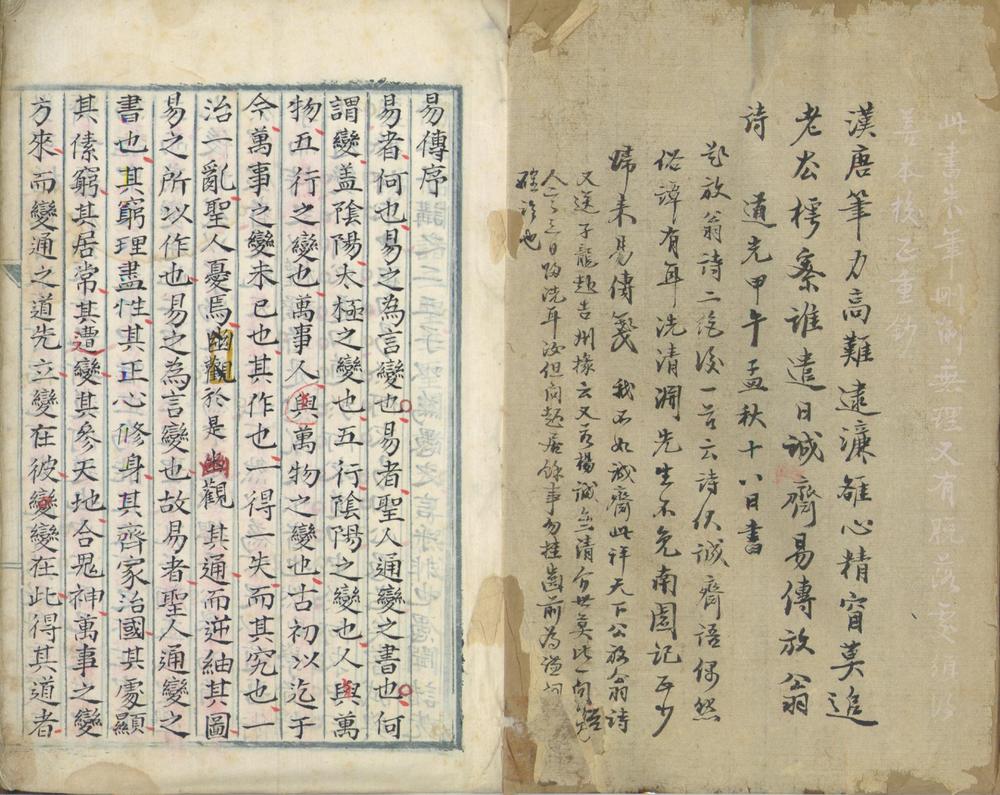 此書朱筆刪削無理又有
善本校正重鈔
漢唐筆力高難逮濂雒心精宵莫追
老公樗案誰遣日誠齋易傳放翁
詩 道光甲午孟秋十八日書
放翁詩二後一言云詩伏誠齋語偶然
俗諱有耳洗清淵先生不免南園記
歸來易傳箋 我不如誠齋此評天下公放翁詩
又送子龍赴吉州掾云又有楊誠齋清介世莫比一句
人三日洗耳汝但問起居餘事勿挂齒前為
也
易傳序
易者何也易之為言變也易者聖人通變之書也何
謂變盖陰陽太極之變也五行陰陽之變也人與萬
物五行之變也萬事人與萬物之變也古初以迄于
今萬事之變未已也其作也一得一失而其究也一
治一亂聖人憂焉幽觀於是幽觀其通而逆紬其圖
易之所以作也易之為言變也故易者聖人通變之
書也其窮理盡性其正心修身其齊家治國其處顯
其傃窮其居常其遭變其參天地合鬼神萬事之變
方來而變通之道先立變在彼變變在此得其道者